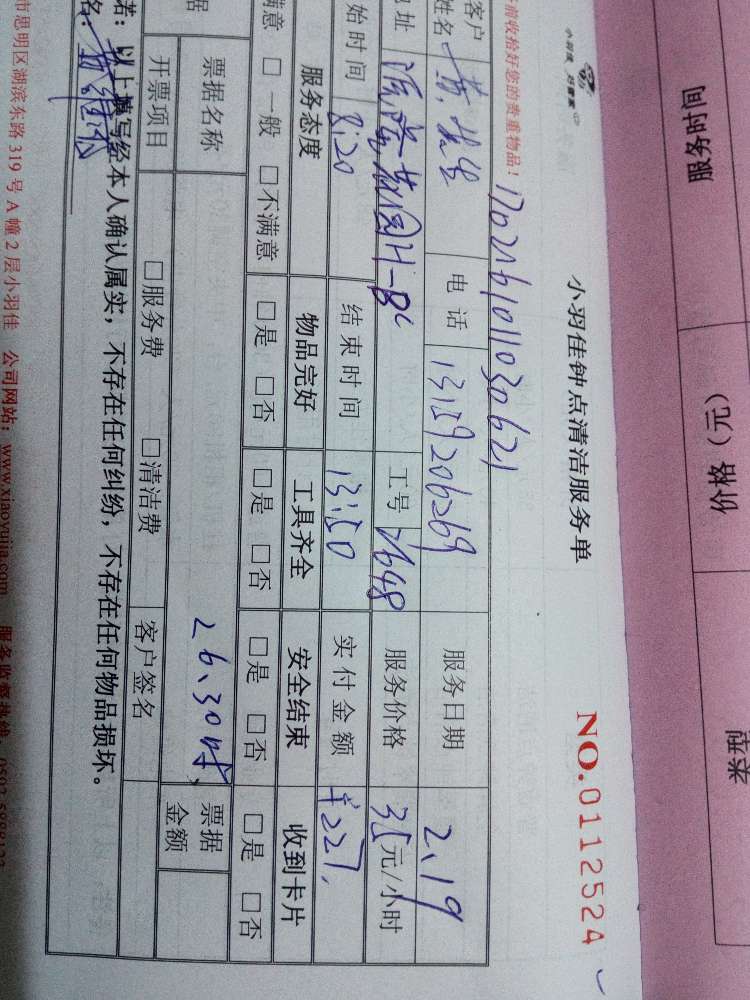 服务时间
价格（元）
类型
小羽佳钟点清洁服务单
NO.0112524
前收拾好您的贵重物品！
1702161011030621
客户
姓名
电话
13159206269
服务日期
2、19
地址
工号
2648
服务价格
35元/小时
始时间
8:20
结束时间
13:50
实付金额
￥227.
服务态度
物品完好
工具齐全
安全结束
收到卡片
满意 □ 一般 □不满意
□是 □否
□是 □否
□是 □否
□是 □否
票据名称
26.30时、
票据
金额
据
开票项目
□服务费 □清洁费
客户签名
诺：以上填写经本人确认属实，不存在任何纠纷，不存在任何物品损坏。
名：
市思明区湖滨东路 319 号 A 幢 2 层小羽佳 公司网站：www.xiaoyujia.com